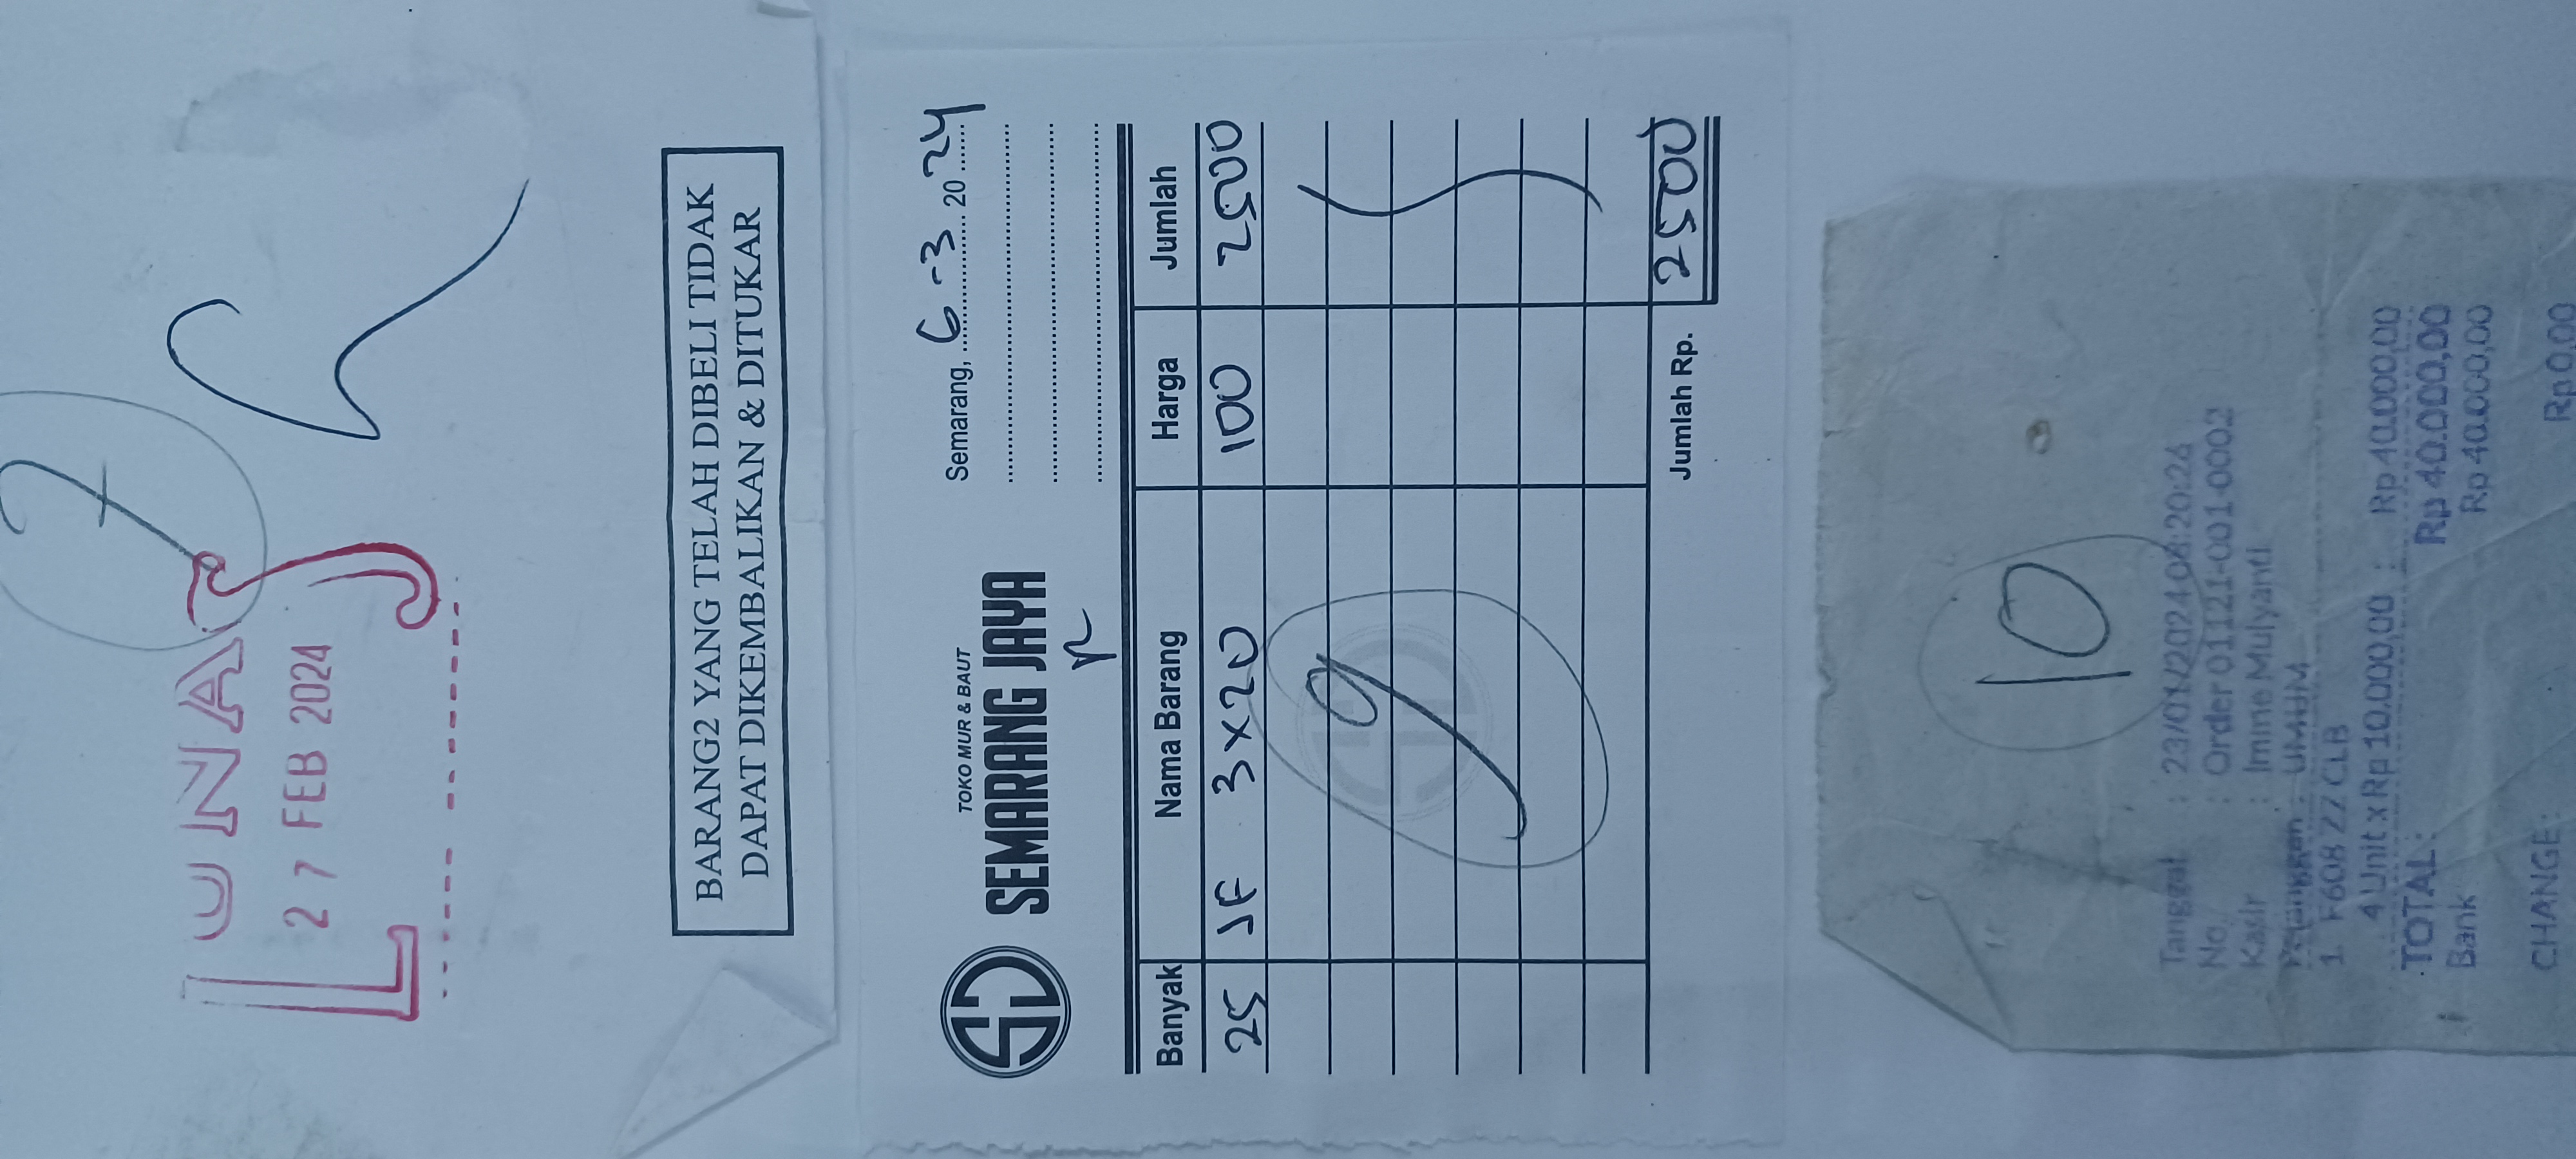 7
LUNAS
27 FEB 2024
BARANG2 YANG TELAH DIBELI TIDAK
DAPAT DIKEMBALIKAN & DITUKAR
TOKO MUR & BAUT
SEMARANG JAYA
Semarang, 6-3 2024
Banyak Nama Barang Harga Jumlah
25 JF 3x20 100 2500
9
Jumlah Rp. 2500
10
Tanggal : 23/01/2024 08:20:26
No. : Order 01121-001-0002
Kasir : Imme Mulyanti
Pelanggan : UMUM
1. F608 ZZ CLB
4 Unit x Rp 10.000,00 : Rp 40.000,00
TOTAL : Rp 40.000,00
Bank Rp 40.000,00
CHANGE : Rp 0,00